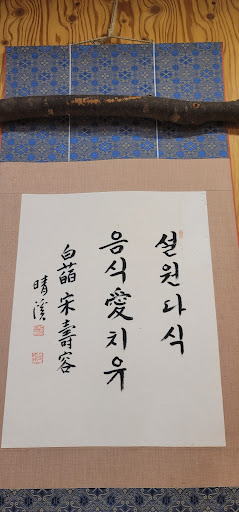 설원다식
음식愛치유
白菡 宋壽容
晴溪